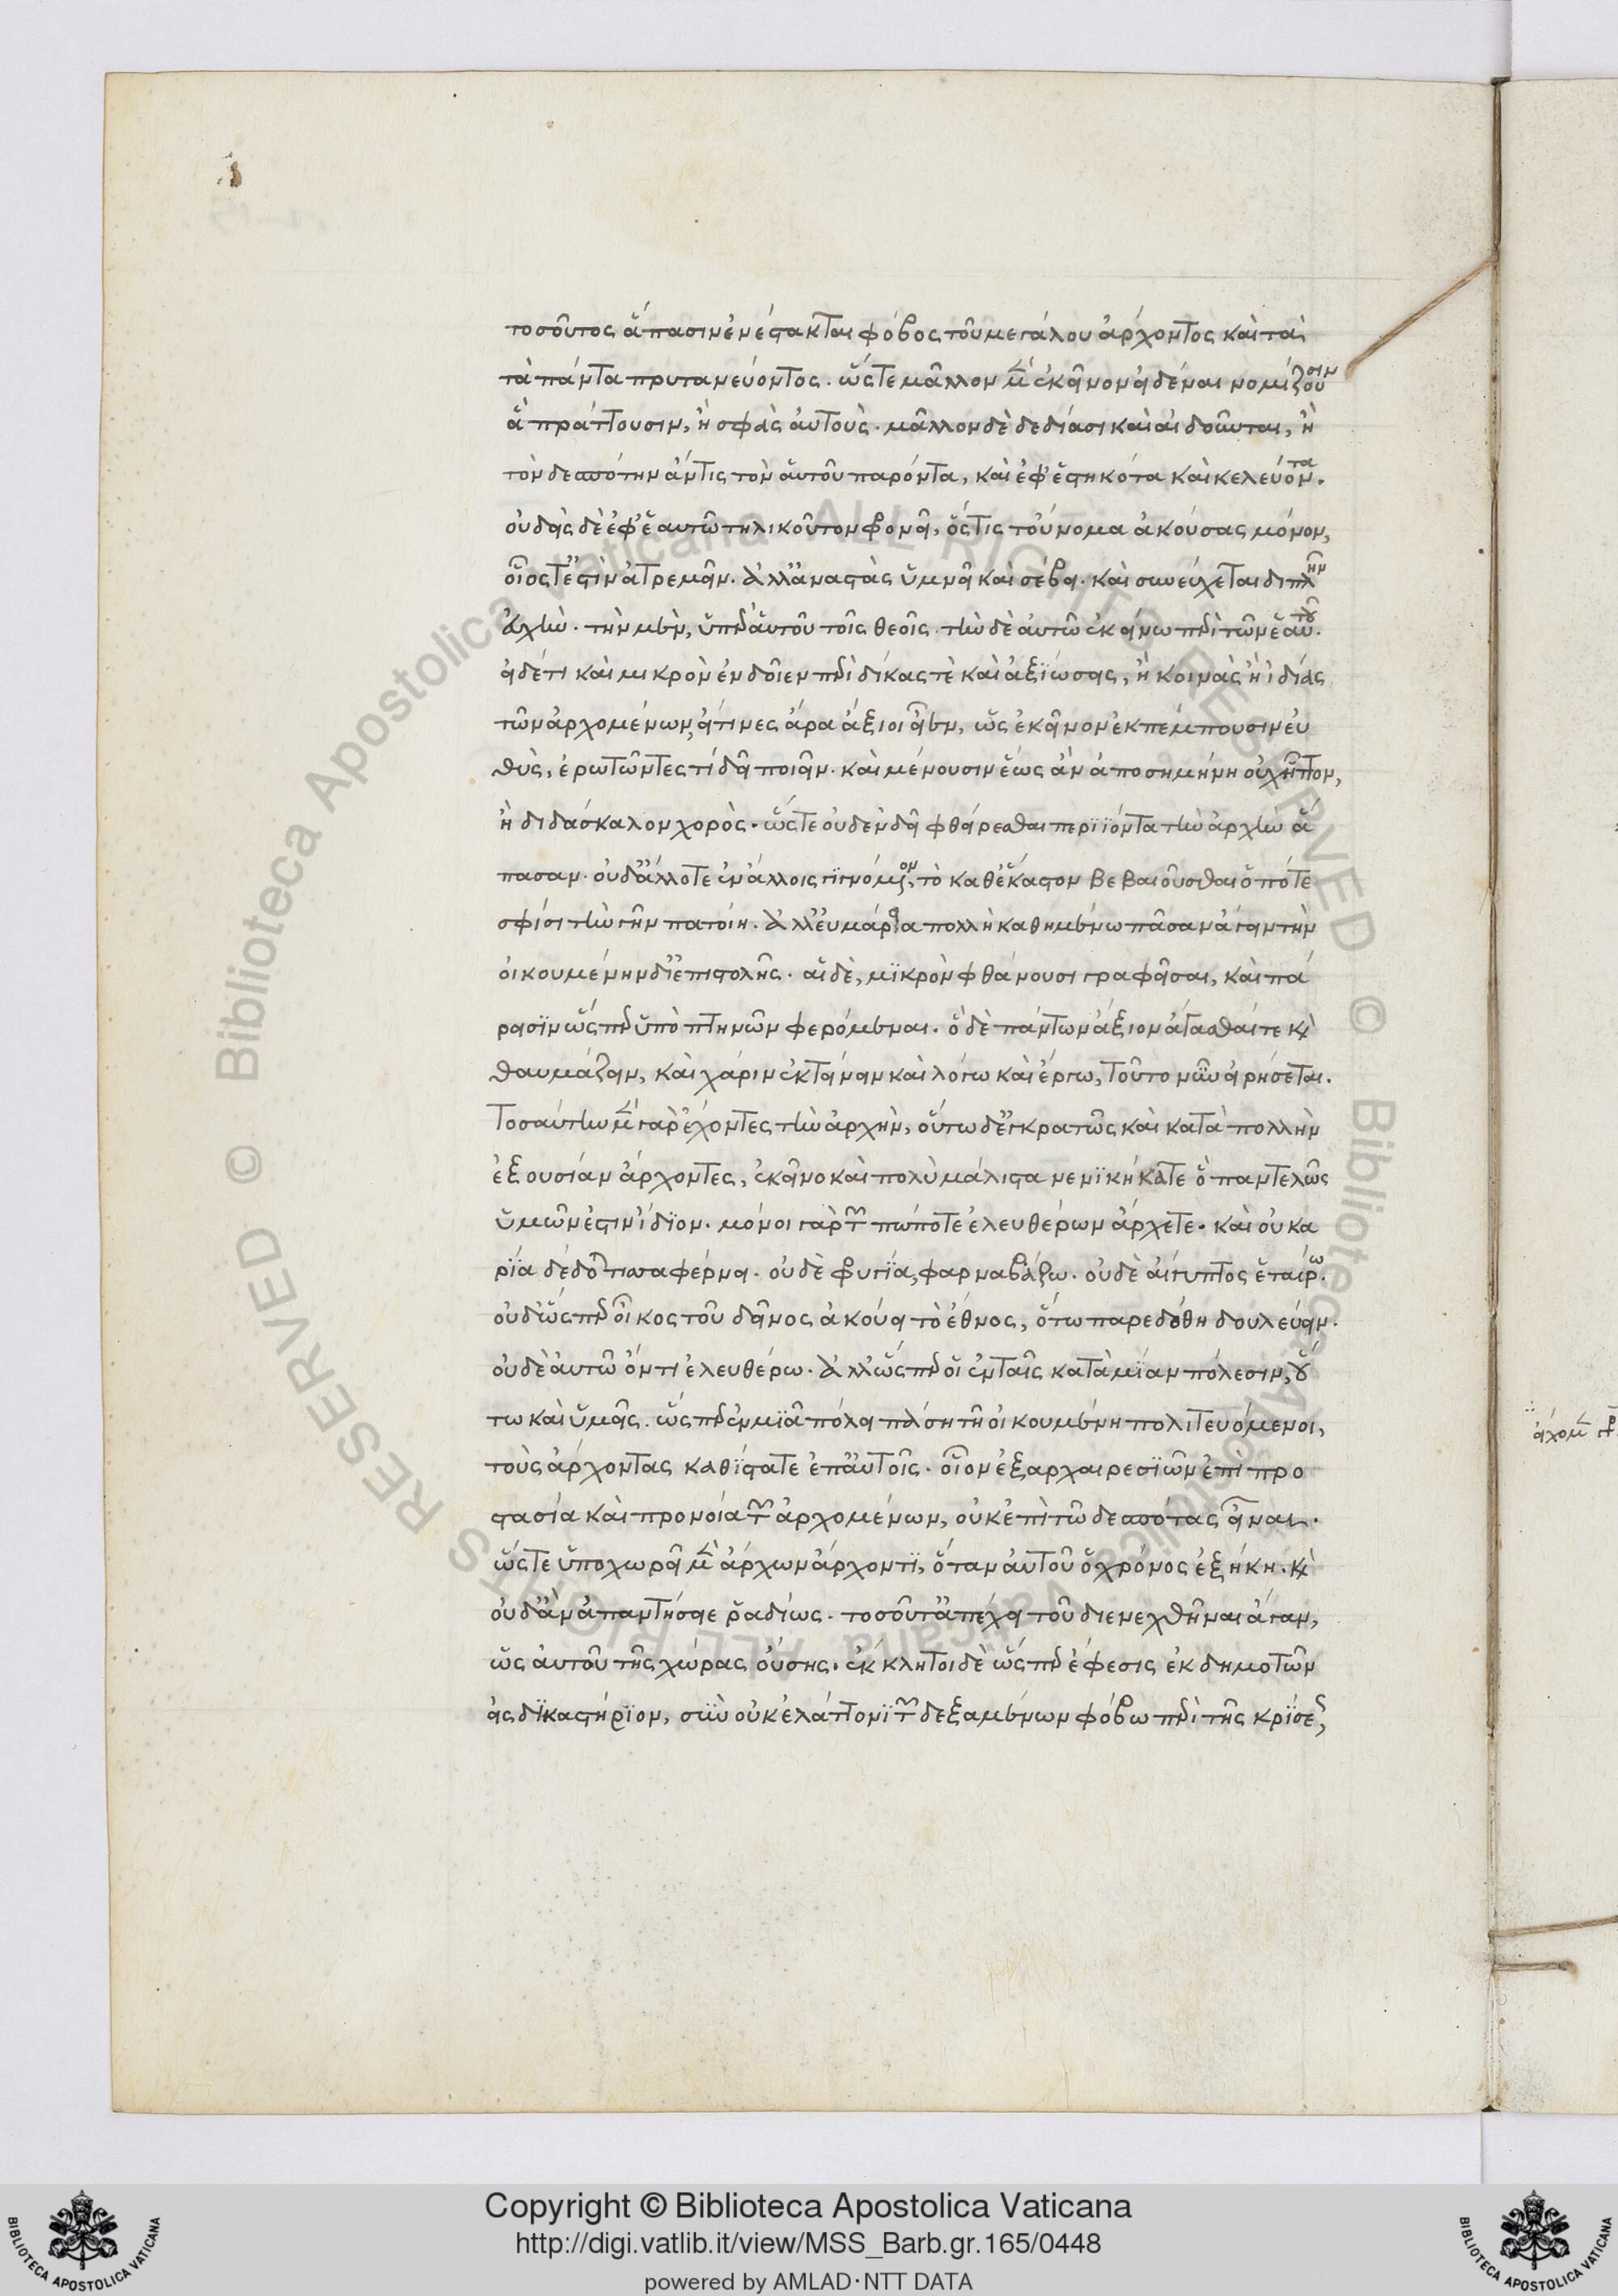 τοσοῦτος ἅπασιν ἐνέστακται φόβος τοῦ μεγάλου ἄρχοντος καὶ τα
τὰ πάντα πρυτανεύοντος. ὥστε μᾶλλον μὲν ἐκεῖνον εἰδέναι νομίζουσιν
ἃ πράττουσιν, ἢ σφᾶς αὐτούς. μᾶλλον δὲ δεδίασι καὶ αἰδοῦνται, ἢ
τὸν δεσπότην ἄν τις τὸν αὑτοῦ παρόντα, καὶ ἐφεστηκότα καὶ κελεύοντα.
οὐδεὶς δὲ ἐφ' ἑαυτῷ τηλικοῦτον φρονεῖ, ὅστις τοὔνομα ἀκούσας μόνον,
οἷός τ' ἐστὶν ἀτρεμεῖν. ἀλλ' ἀναστὰς ὑμνεῖ καὶ σέβει. καὶ συνεύχεται διπλῆν
εὐχήν. τὴν μὲν, ὑπὲρ αὑτοῦ τοῖς θεοῖς. τὴν δὲ αὐτῷ ἐκείνῳ περὶ τῶν ἑαυτοῦ.
εἰ δέ τι καὶ μικρὸν ἐνδοῖεν περὶ δίκας τὲ καὶ ἀξιώσεις, ἢ κοινὰς ἢ ἰδίας
τῶν ἀρχομένων, εἴ τινες ἄρα ἄξιοι εἶεν, ὡς ἐκεῖνον ἐκπέμπουσιν εὐ
θὺς, ἐρωτῶντες τί δεῖ ποιεῖν. καὶ μένουσιν ἕως ἂν ἀποσημήνῃ οὐχ ἧττον,
ἢ διδάσκαλον χορὸς. ὥστε οὐδὲν δεῖ φθείρεσθαι περιϊόντα τὴν ἀρχὴν ἅ
πασαν. οὐδ' ἄλλοτε ἐν ἄλλοις γιγνόμενον, τὸ καθ' ἕκαστον βεβαιοῦσθαι ὁπότε
σφίσι τὴν γῆν πατοίη. ἀλλ' εὐμάρεια πολλὴ καθημένῳ πᾶσαν ἄγειν τὴν
οἰκουμένην δι' ἐπιστολῆς. αἱ δὲ, μικρὸν φθάνουσι γραφεῖσαι, καὶ πά
ρεισιν ὥσπερ ὑπὸ πτηνῶν φερόμεναι. ὃ δὲ πάντων ἄξιον ἄγασθαί τε καὶ
θαυμάζειν, καὶ χάριν ἐκτείνειν καὶ λόγῳ καὶ ἔργῳ, τοῦτο νῦν εἰρήσεται.
Τοσαύτην μὲν γὰρ ἔχοντες τὴν ἀρχὴν, οὕτω δ' ἐγκρατῶς καὶ κατὰ πολλὴν
ἐξουσίαν ἄρχοντες, ἐκεῖνο καὶ πολὺ μάλιστα νενικήκατε ὃ παντελῶς
ὑμῶν ἐστιν ἴδιον. μόνοι γὰρ τῶν πώποτε ἐλευθέρων ἄρχετε. καὶ οὐ κα
ρία δέδοται τισσαφέρνει. οὐδὲ φρυγία, φαρναβάζῳ. οὐδὲ αἴγυπτος ἑταίρῳ.
οὐδ' ὥσπερ οἶκος τοῦ δεῖνος ἀκούει τὸ ἔθνος, ὅτῳ παρεδόθη δουλεύειν.
οὐδὲ αὐτῷ ὄντι ἐλευθέρῳ. ἀλλ' ὥσπερ οἱ ἐν ταῖς κατὰ μίαν πόλεσιν, οὕ
τω καὶ ὑμεῖς. ὥσπερ ἐν μιᾷ πόλει πάσῃ τῇ οἰκουμένῃ πολιτευόμενοι,
τοὺς ἄρχοντας καθίστατε ἐπ' αὐτοῖς. οἷον ἐξ ἀρχαιρεσιῶν ἐπὶ προ
στασίᾳ καὶ προνοίᾳ τῶν ἀρχομένων, οὐκ ἐπὶ τῷ δεσπότας εἶναι.
ὥστε ὑποχωρεῖ μὲν ἄρχων ἄρχοντι, ὅταν αὐτοῦ ὁ χρόνος ἐξήκῃ. καὶ
οὐδ' ἂν ἀπαντήσειε ῥᾳδίως. τοσοῦτ' ἀπέχει τοῦ διενεχθῆναι ἄγαν,
ὡς αὐτοῦ τῆς χώρας οὔσης. ἔκκλητοι δὲ ὥσπερ ἔφεσις ἐκ δημοτῶν
εἰς δικαστήριον, σὺν οὐκ ἐλάττονι τῶν δεξαμένων φόβῳ περὶ τῆς κρίσεως,
Copyright © Biblioteca Apostolica Vaticana
http://digi.vatlib.it/view/MSS_Barb.gr.165/0448
powered by AMLAD·NTT DATA